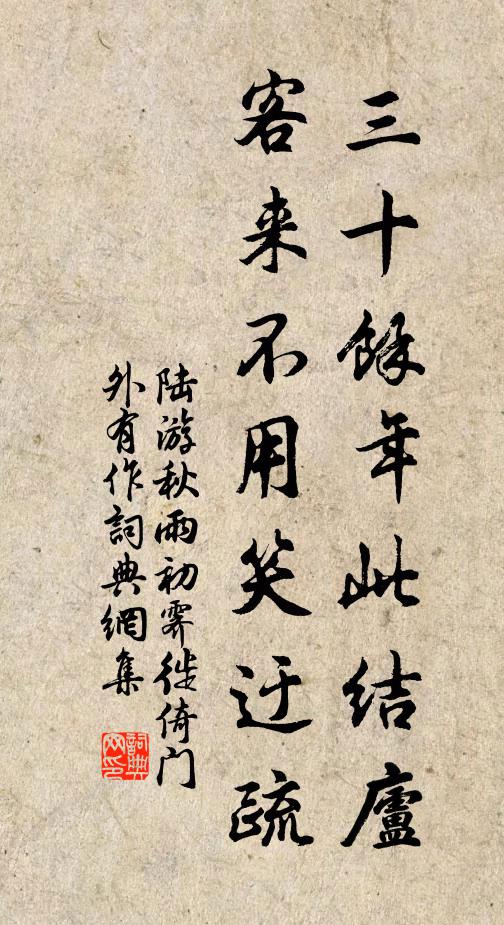 三十餘年此結廬
客来不用笑迂疏
陆游秋雨初霁徙倚门
外有作詞典網集
詞典
网印